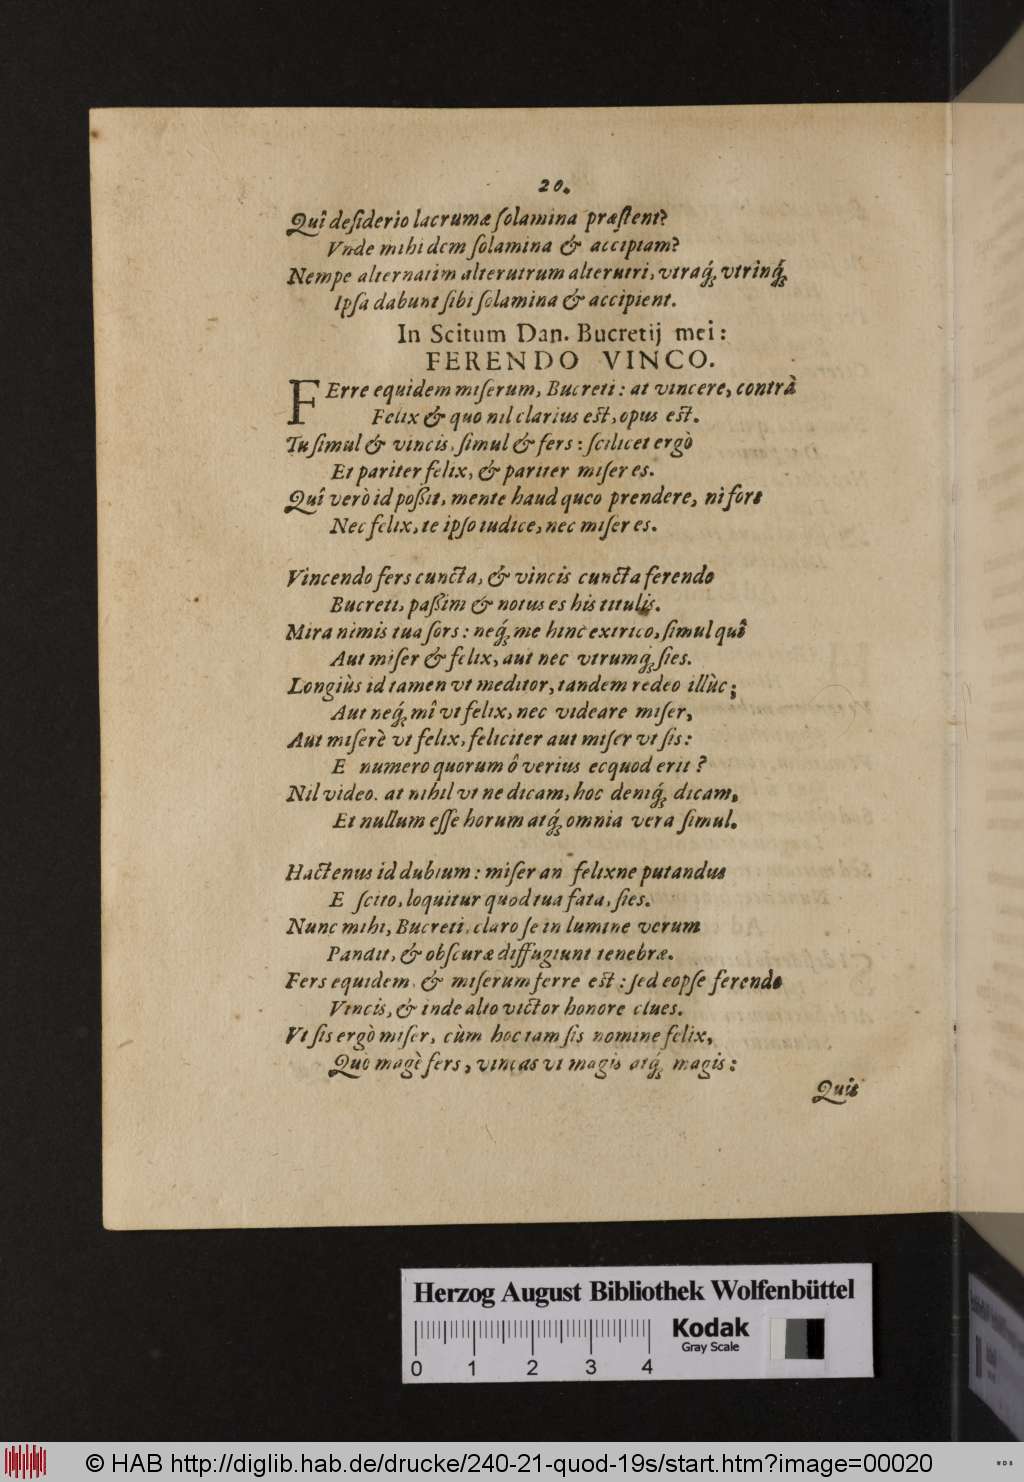 20.
Quî deſiderio lacrumæ ſolamina præſtent?
Vnde mihi dem ſolamina & accipiam?
Nempe alternatim alterutrum alterutri, vtraq́; vtrinq́;
Ipſa dabunt ſibi ſolamina & accipient.
In Scitum Dan. Bucretij mei:
FERENDO VINCO.
FErre equidem miſerum, Bucreti: at vincere, contrà
Felix & quo nil clarius eſt, opus eſt.
Tu ſimul & vincis, ſimul & fers: ſcilicet ergò
Et pariter felix, & pariter miſer es.
Quî verò id poßit, mente haud queo prendere, nì fors
Nec felix, te ipſo iudice, nec miſer es.
Vincendo fers cuncta, & vincis cuncta ferendo
Bucreti, paßim & notus es his titulis.
Mira nimis tua ſors: neq́; me hinc extrico, ſimul quî
Aut miſer & felix, aut nec vtrumq́; ſies.
Longiùs id tamen vt meditor, tandem redeo illùc;
Aut neq́; mî vt felix, nec videare miſer,
Aut miſerè vt felix, feliciter aut miſer vt ſis:
E numero quorum ô verius ecquod erit?
Nil video. at nihil vt ne dicam, hoc deniq́; dicam,
Et nullum eſſe horum atq́; omnia vera ſimul.
Hactenus id dubium: miſer an felixne putandus
E ſcito, loquitur quod tua fata, ſies.
Nunc mihi, Bucreti, claro ſe in lumine verum
Pandit, & obſcuræ diffugiunt tenebræ.
Fers equidem, & miſerum ferre eſt: ſed eopſe ferendo
Vincis, & inde alto victor honore clues.
Vt ſis ergò miſer, cùm hoc tam ſis nomine felix,
Quò magè fers, vincas vt magis atq́; magis:
Quis
Herzog August Bibliothek Wolfenbüttel
0 1 2 3 4
Kodak
Gray Scale
© HAB http://diglib.hab.de/drucke/240-21-quod-19s/start.htm?image=00020